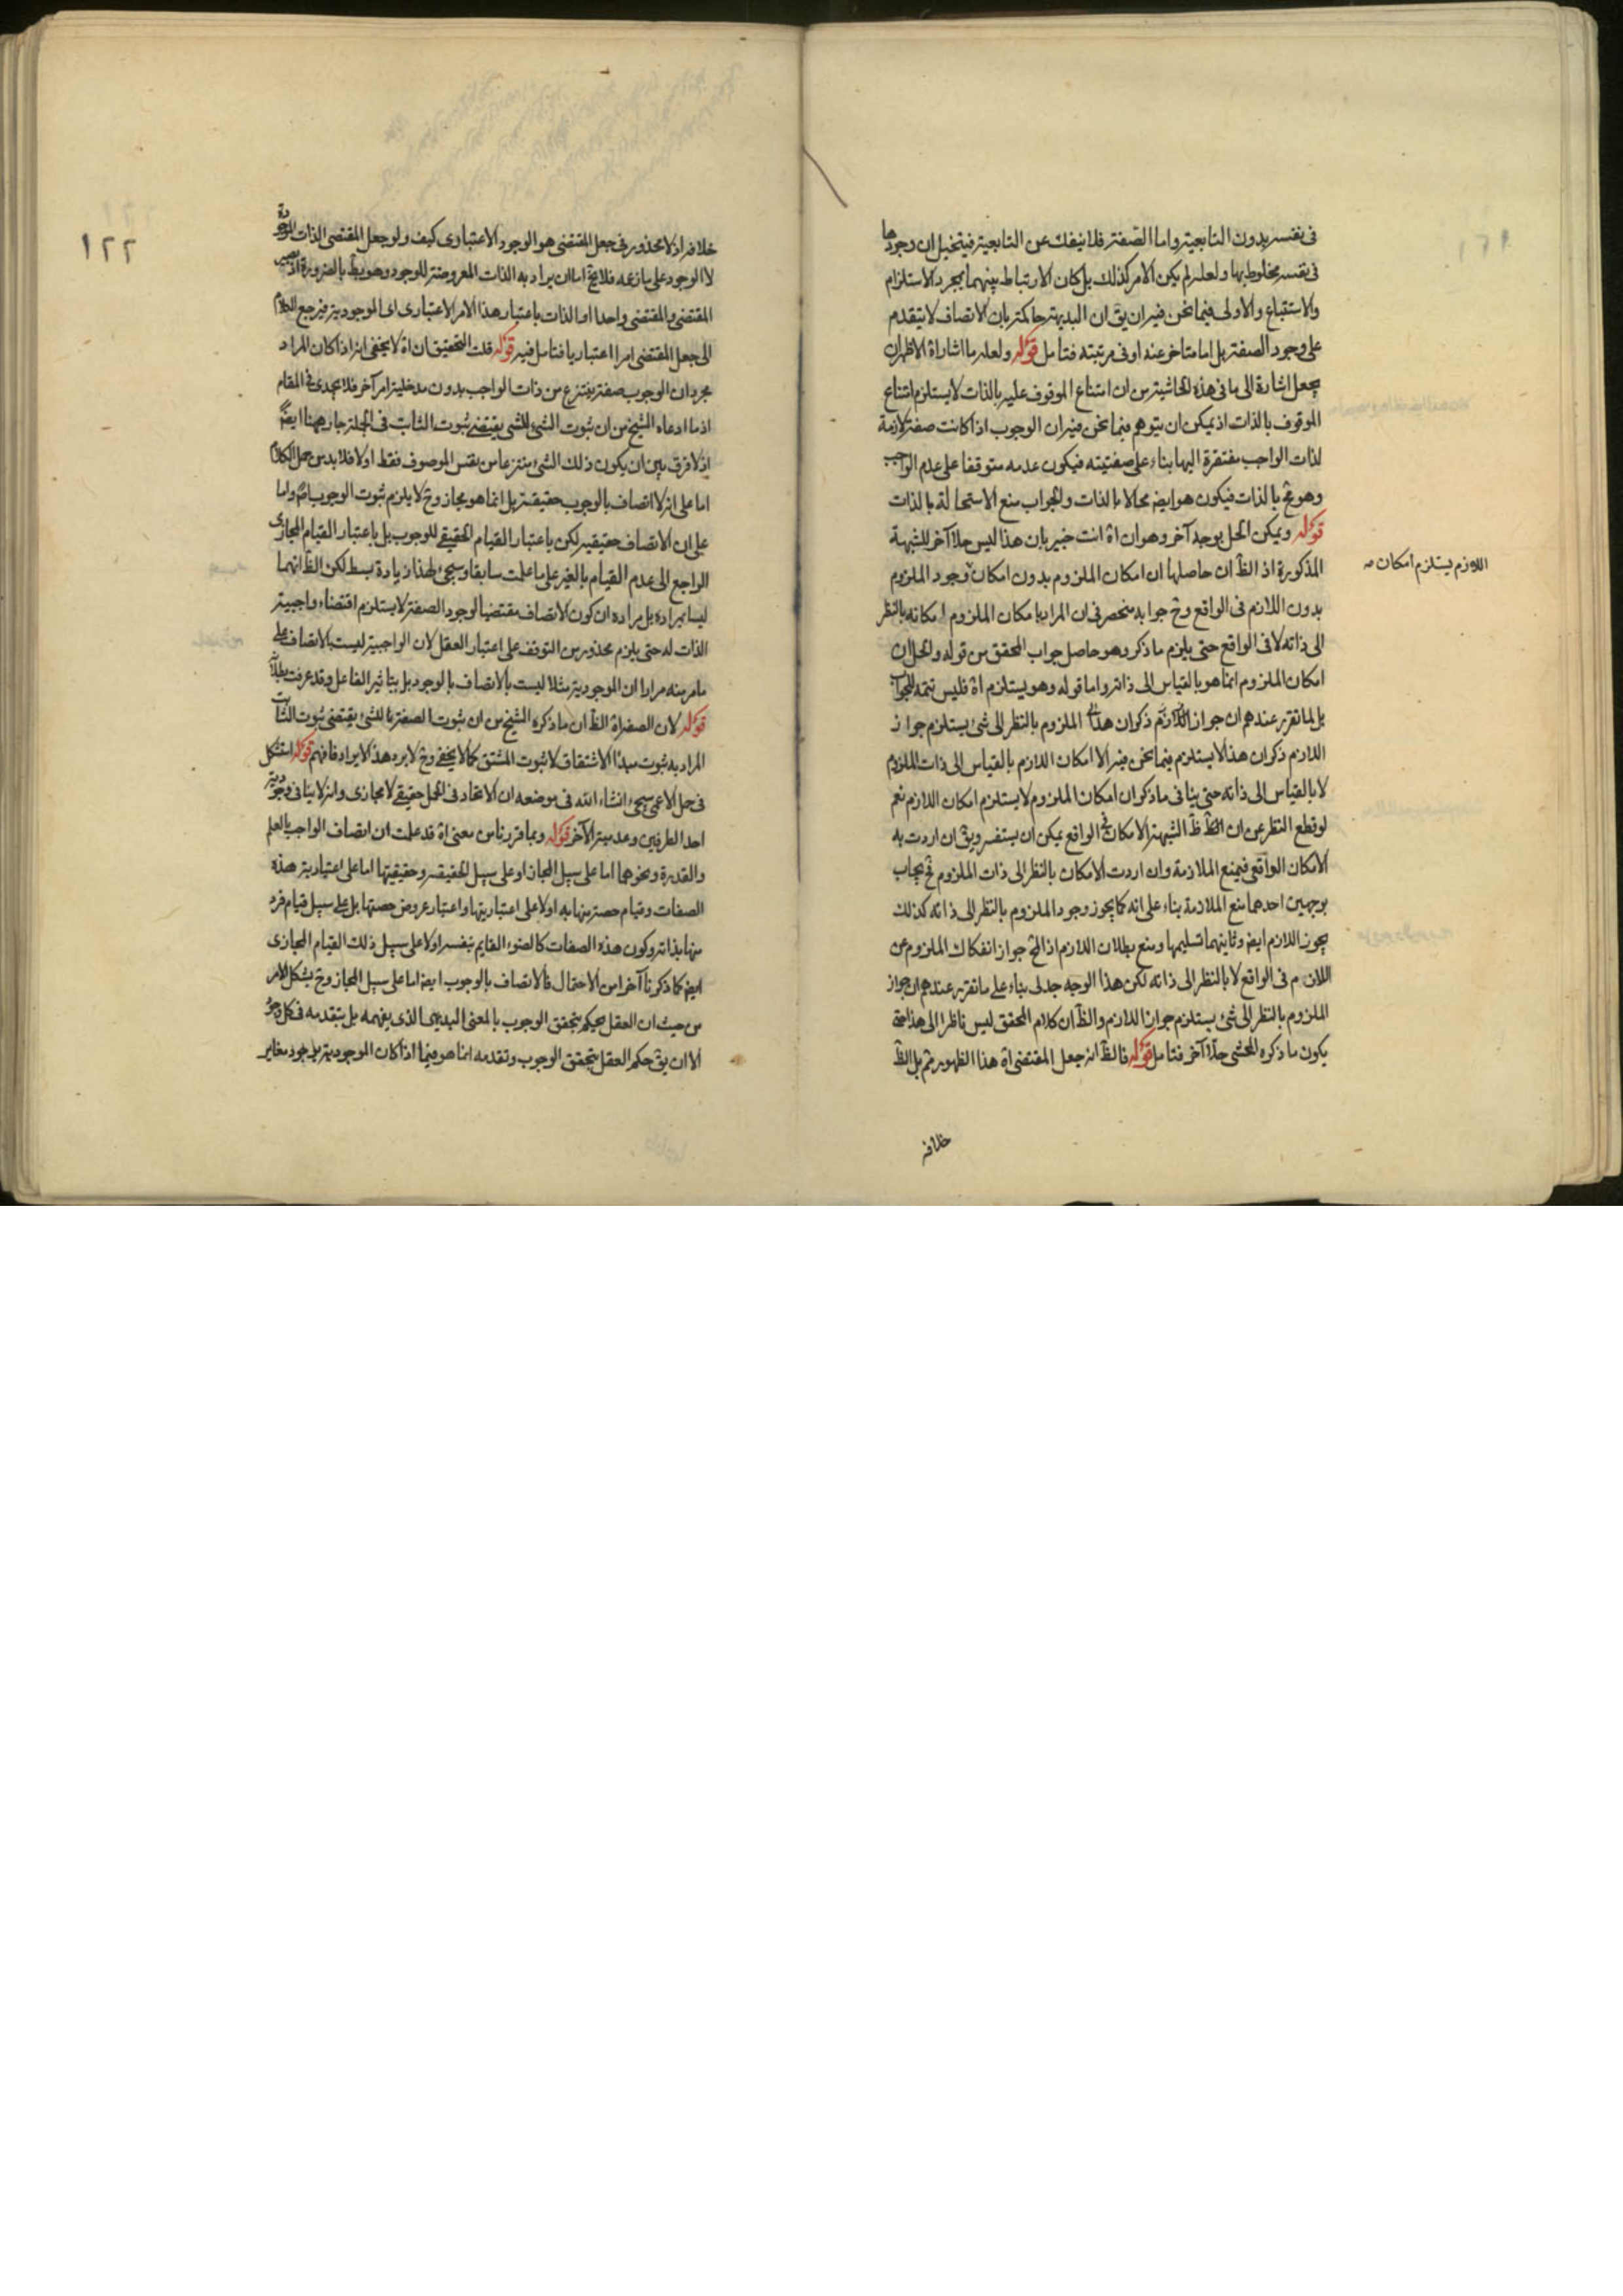 فى نفسه بدون التابعية واما الصفة فلا ينفك عن التابعية فيتخيل ان وجودها
فى نفسه مخلوط بها ولعله لم يكن الامر كذلك بل كان الارتباط بينهما بمجرد الاستلزام
والاستتباع والاولى فيما نحن فيه ان يق ان البديهة حاكمة بان الاتصاف لا يتقدم
على وجود الصفة بل اما متاخر عنه او فى مرتبته فتامل قوله ولعله ما اشار اه الاظهر ان
يجعل اشارة الى ما فى هذه الحاشية من ان امتناع الموقوف عليه بالذات لا يستلزم امتناع
الموقوف بالذات اذ يمكن ان يتوهم فيما نحن فيه ان الوجوب اذا كانت صفة لازمة
لذات الواجب مفتقرة اليها بناء على صفتيته فيكون عدمه متوقفا على عدم الواجب
وهو مح بالذات فيكون هو ايض محالا بالذات والجواب منع الاستحالة بالذات
قوله ويمكن الحل بوجه آخر وهو ان اه انت خبير بان هذا ليس حلا آخر للشبهة
المذكورة اذ الظ ان حاصلها ان امكان الملزوم بدون امكان وجود الملزوم
اللازم يستلزم امكان
بدون اللازم فى الواقع وح جوابه منحصر فى ان المراد بامكان الملزوم امكانه بالنظر
الى ذاته لا فى الواقع حتى يلزم ما ذكر وهو حاصل جواب المحقق من قوله والحل ان
امكان الملزوم انما هو بالقياس الى ذاته واما قوله وهو يستلزم اه فليس تتمه للجواب
بل لما تقرر عندهم ان جواز الملزوم بالنظر الى شئ يستلزم جواز
اللازم ذكر ان هذا لا يستلزم فيما نحن فيه الا امكان اللازم بالقياس الى ذات الملزوم
لا بالقياس الى ذاته حتى ينافى ما ذكر ان امكان الملزوم لا يستلزم امكان اللازم نعم
لو قطع النظر عن ان الشبهة الامكان فى الواقع يمكن ان يستفسر ويق ان اردت به
الامكان الواقعى فيمنع الملازمة وان اردت الامكان بالنظر الى ذات الملزوم فح يجاب
بوجهين احدهما منع الملازمة بناء على انه كما يجوز وجود الملزوم بالنظر الى ذاته كذلك
يجوز اللازم ايض وثانيهما تسليمها ومنع بطلان اللازم اذ المح جواز انفكاك الملزوم عن
اللازم فى الواقع لا بالنظر الى ذاته لكن هذا الوجه جدلى بناء على ما تقرر عندهم ان جواز
الملزوم بالنظر الى شئ يستلزم جواز اللازم والظ ان كلام المحقق ليس ناظرا الى هذا حتى
يكون ما ذكره المحشى حلا آخر فتامل قوله فالظ انه جعل المقتضى اه هذا الظهور مم بل الظ
خلافه
١٢٢
خلافه اذ لا محذور فى جعل المقتضى هو الوجود الاعتبارى كيف ولو جعل المقتضى الذات الموجودة
لا الوجود على ما زعمه فلا يخ اما ان يراد به الذات المعروضة للوجود وهو بط بالضرورة اذ يصير
المقتضى والمقتضى واحدا او الذات باعتبار هذا الامر الاعتبارى اى الموجودية فيرجع الكلام
الى جعل المقتضى امرا اعتباريا فتامل فيه قوله قلت التحقيق ان اه لا يخفى انه اذا كان المراد
مجرد ان الوجوب صفة ينتزع من ذات الواجب بدون مدخلية امر آخر فلا يجدى فى المقام
اذ ما ادعاه الشيخ من ان ثبوت الشئ للشئ يقتضى ثبوت الثابت فى الجملة جار ههنا ايض
اذ لا فرق بين ان يكون ذلك الشئ منتزعا من نفس الموصوف فقط او لا فلا بد من حمل الكلام
اما على انه لا اتصاف بالوجوب حقيقة بل انما هو مجاز وح لا يلزم ثبوت الوجوب اه واما
على ان الاتصاف حقيقيه لكن باعتبار القيام الحقيقى للوجوب بل باعتبار القيام المجازى
الراجع الى عدم القيام بالغير على ما علمت سابقا وسيجئ لهذا زيادة بسط لكن الظ انهما
ليسا بمراده بل مراده ان كون الاتصاف مقتضيا لوجود الصفة لا يستلزم اقتضاء واجبية
الذات له حتى يلزم محذور من التوقف على اعتبار العقل لان الواجبية ليست بالاتصاف على
ما مر منه مرارا ان الموجودية مثلا ليست بالاتصاف بالوجود بل بتاثير الفاعل وقد عرفت بطلانه
قوله لان الصفة اه الظ ان ما ذكره الشيخ من ان ثبوت الصفة للشئ يقتضى ثبوت الثابت
المراد به ثبوت مبدأ الاشتقاق لا ثبوت المشتق كما لا يخفى وح لا يرد هذا الايراد فافهم قوله استشكل
فى حمل الاعمى سيجئ انشاء الله فى موضعه ان الاتحاد فى الحمل حقيقى لا مجازى وانه لا ينافى وجودية
احد الطرفين وعدمية الآخر قوله وبما قررنا من معنى اه قد علمت ان اتصاف الواجب بالعلم
والقدرة ونحوهما اما على سبيل المجاز او على سبيل الحقيقة وحقيقتها اما على اعتبارية هذه
الصفات وقيام حصة منها به او لا على اعتباريتها واعتبار عروض حصتها بل على سبيل قيام فرد
منها بذاته وكون هذه الصفات كالضوء القايم بنفسه او لا على سبيل ذلك القيام المجازى
ايض كما ذكرنا آخرا من الاحتمال فالاتصاف بالوجوب ايضا اما على سبيل المجاز وح يشكل الامر
من حيث ان العقل يحكم بتحقق الوجوب بالمعنى البديهى الذى يفهمه بل بتقدمه فى كل وجود
الا ان يق حكم العقل بتحقق الوجوب وتقدمه انما هو فيما اذا كان الموجودية بوجود مغاير